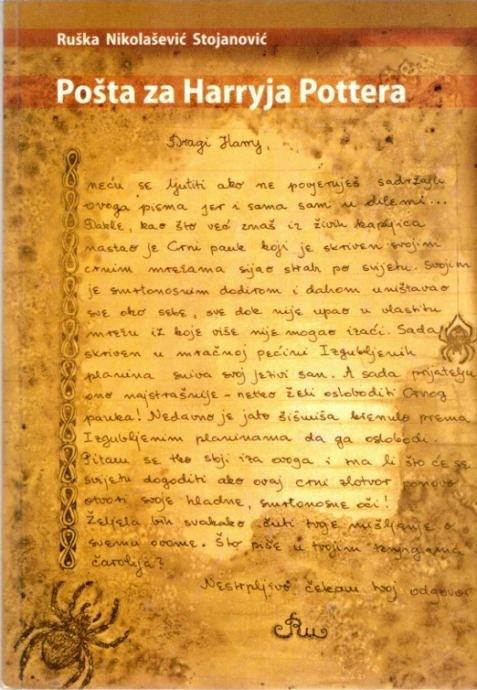 Ruška Nikolašević Stojanović
Pošta za Harryja Pottera
Dragi Harry,
neću se ljutiti ako ne povjeruješ sadržaju
ovoga pisma jer i sama sam u dilemi...
Dakle, kao što već znaš iz živih kapljica
nastao je Crni pauk koji je skriven svojim
crnim mrežama sijao strah po svijetu. Svojim
je smrtonosnim dodirom i dahom uništavao
sve oko sebe, sve dok nije upao u vlastitu
mrežu iz koje više nije mogao izaći. Sada
skriven u mračnoj pećini Izgubljenih
planina sniva svoj jezivi san. A sada prijatelju
ono najstrašnije - netko želi osloboditi Crnog
pauka! Nedavno je jato šišmiša krenulo prema
Izgubljenim planinama da ga oslobodi.
Pitam se tko stoji iza ovoga i zna li što će se
svijetu dogoditi ako ovaj crni zlotvor ponovo
otvori svoje hladne, smrtonosne oči!
Željela bih svakako čuti tvoje mišljenje o
svemu ovome. Što piše u tvojim knjigama
čarolija?
Nestrpljivo čekam tvoj odgovor
Ru